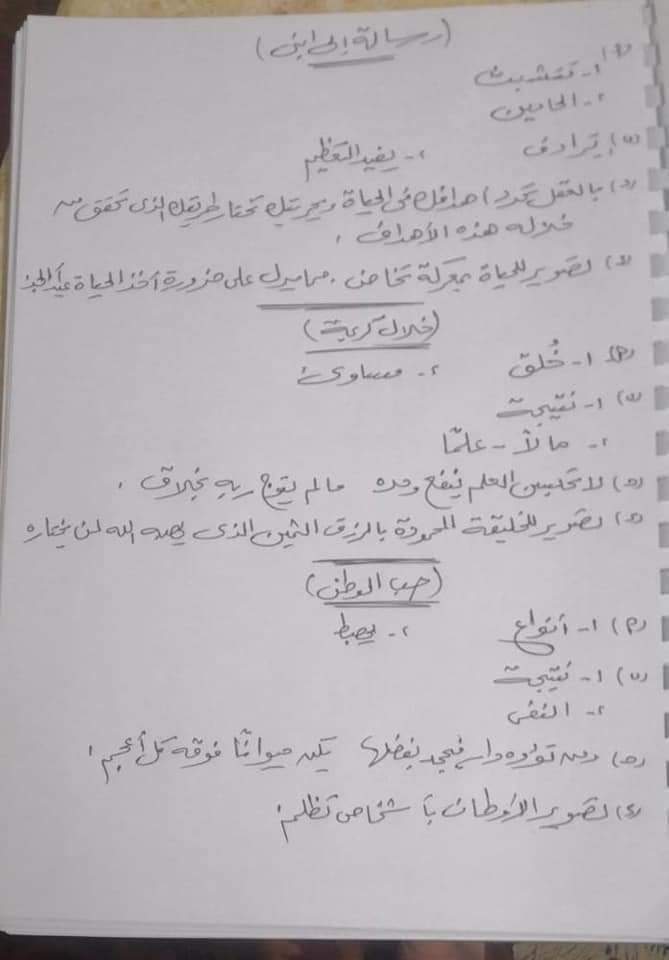 (رسالة إلى ابنى)
(أ) ١- تشبث
٢- الحامين
(ب) ترادف ٢- يفيد التعظيم
(ج) بالعقل تحدد أهدافك فى الحياة وبحريتك تختار طريقك الذى تحقق من
خلاله هذه الأهداف .
(د) تصوير للحياة بمعركة تخاض ، مما يدل على ضرورة أخذ الحياة
(خلال كريمة)
(أ) ١- خُلق ٢- مساوئ
(ب) ١- نتيجة
٢- مالاً - علمًا
(ج) لا تحسبن العلم ينفع وحده ما لم يتوج ربه بخلاق .
(د) تصوير للخليقة المحمودة بالرزق الثمين الذى يهبه الله لمن يختاره
(حب الوطن)
(أ) ١- أنواع ٢- يهبط
(ب) ١- نتيجة
٢- النفى
(ج) ومن تؤوه دار فيجحد بفضلها يكن حيوانًا فوقه كل أعجم
(د) تصوير الأوطان بأشخاص تظلم